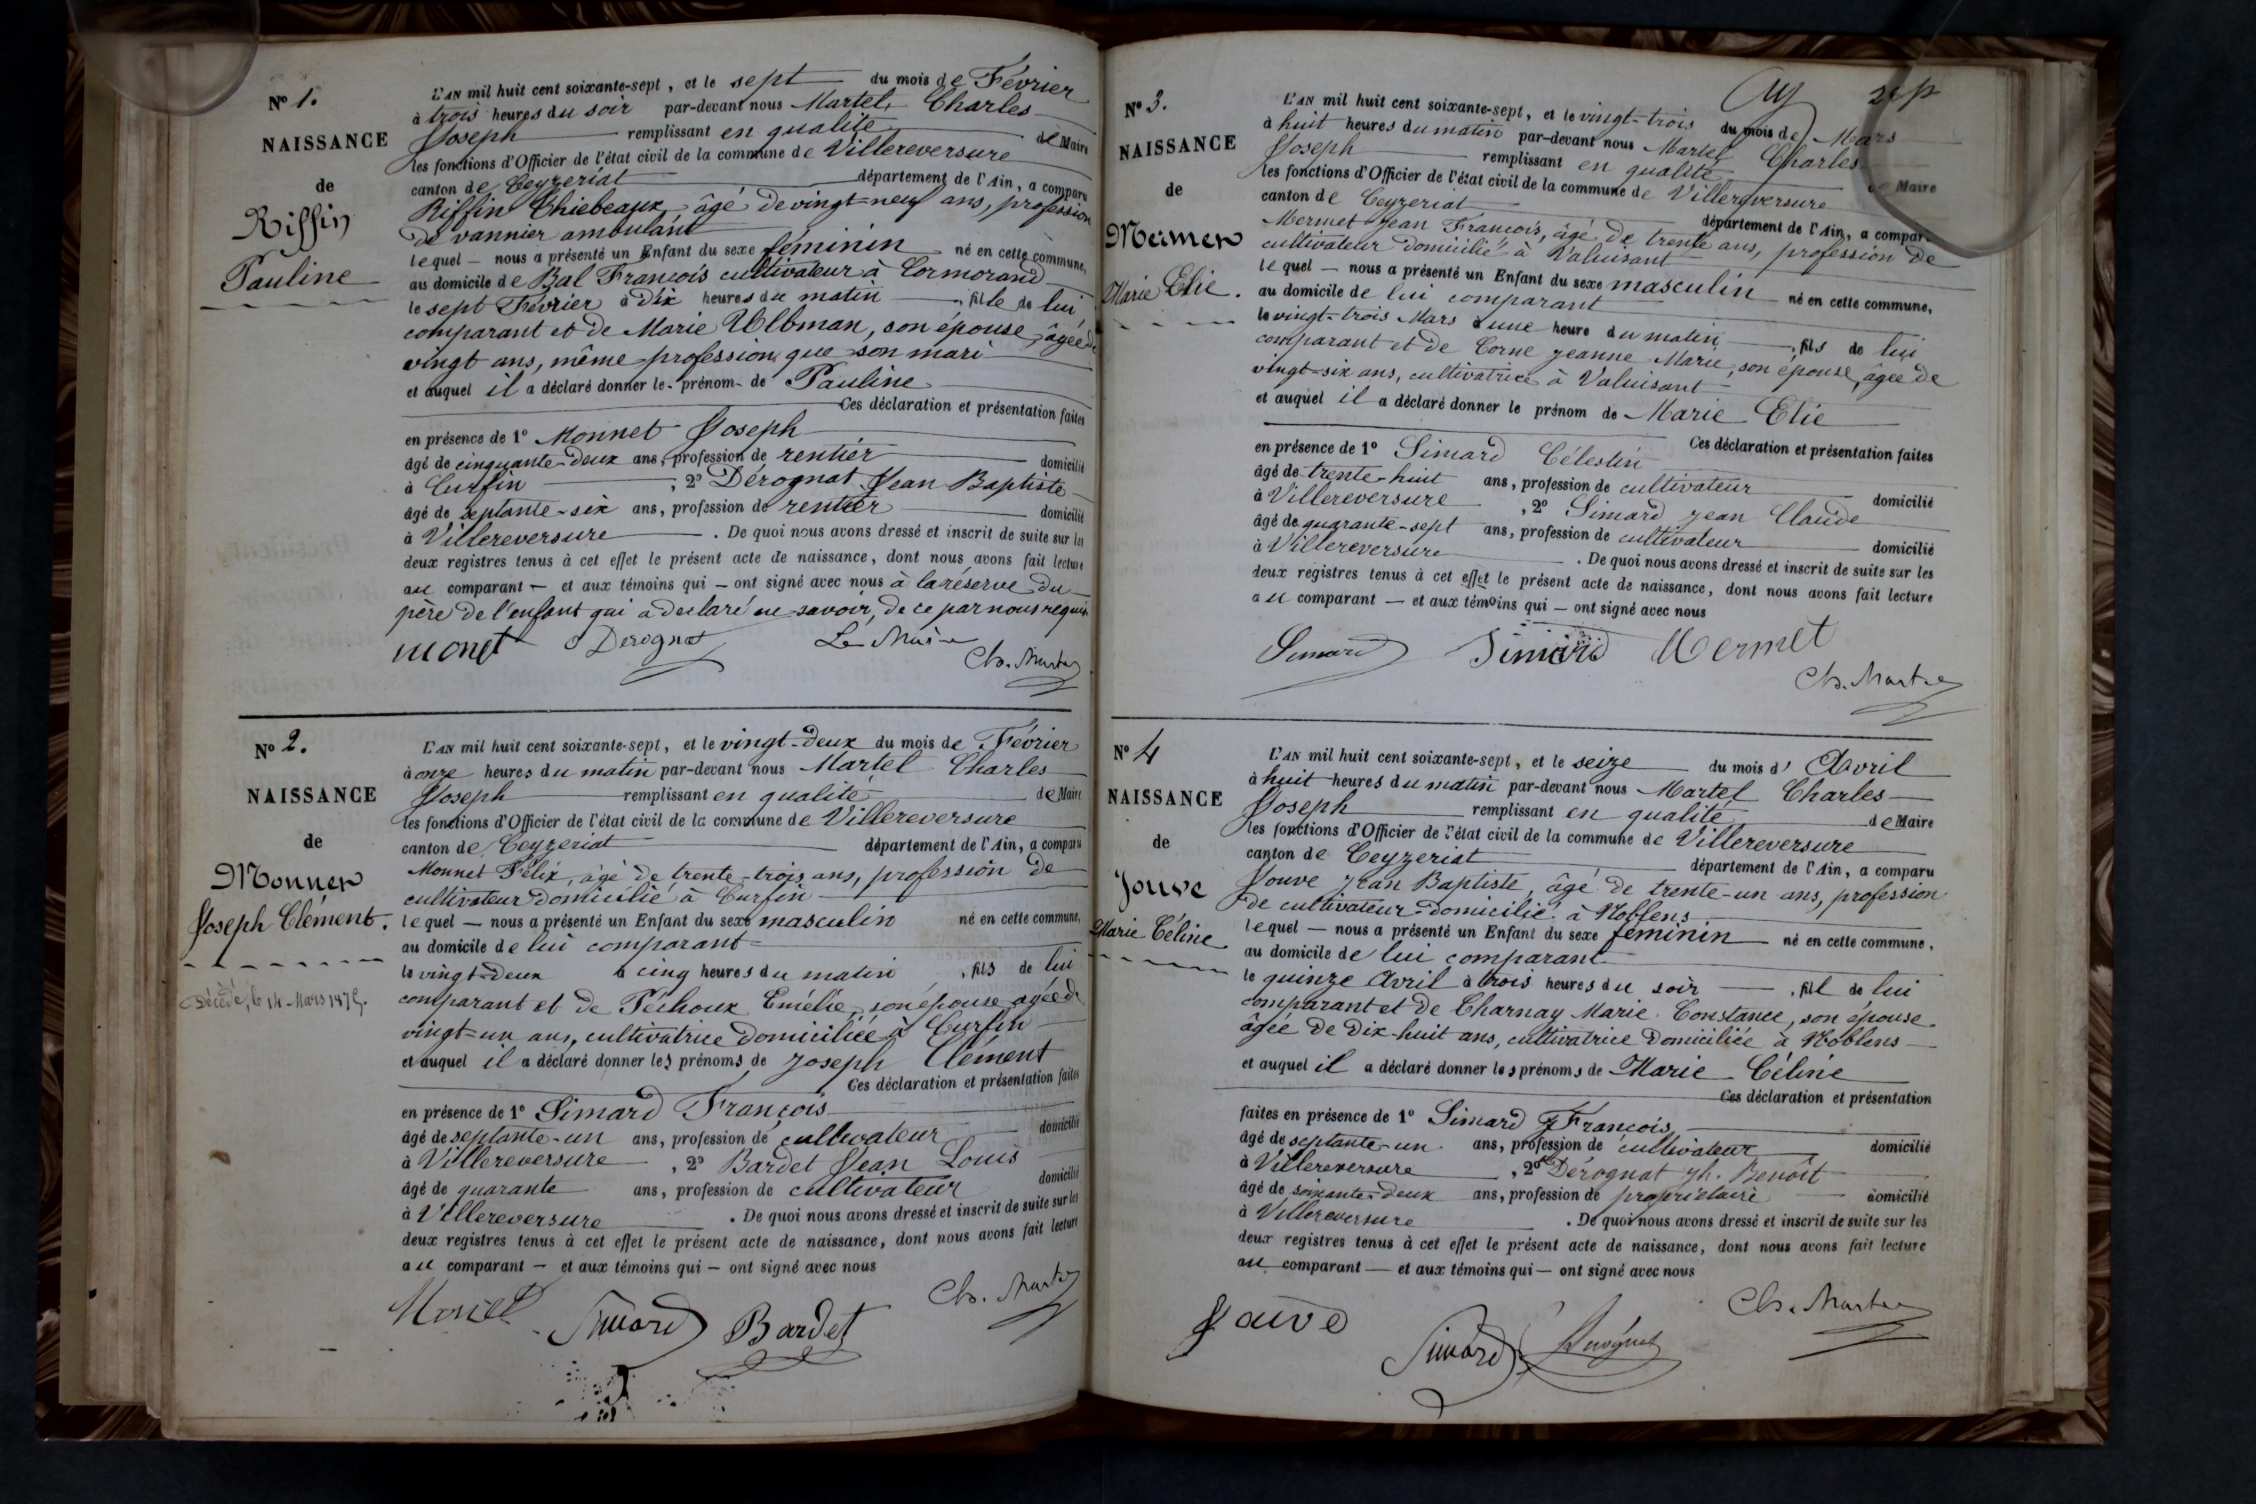 N° 1.
NAISSANCE
de
Riffin
Pauline
L'AN mil huit cent soixante-sept, et le sept du mois de Février
à trois heures du soir par-devant nous Martel Charles
Joseph remplissant en qualité de Maire
les fonctions d'Officier de l'état civil de la commune de Villereversure
canton de Ceyzeriat département de l'Ain, a comparu
Riffin Thiebeaux âgé de vingt-neuf ans, profession
de vannier ambulant
lequel — nous a présenté un Enfant du sexe féminin né en cette commune,
au domicile de Bal François cultivateur à Cormorand
le sept Février à dix heures du matin, fille de lui
comparant et de Marie Ulbman, son épouse, âgée de
vingt ans, même profession que son mari
et auquel il a déclaré donner le prénom de Pauline
Ces déclaration et présentation faites
en présence de 1° Monnet Joseph
âgé de cinquante-deux ans, profession de rentier domicilié
à Curfin, 2° Dérognat Jean Baptiste
âgé de septante-six ans, profession de rentier domicilié
à Villereversure. De quoi nous avons dressé et inscrit de suite sur les
deux registres tenus à cet effet le présent acte de naissance, dont nous avons fait lecture
au comparant — et aux témoins qui — ont signé avec nous à la réserve du
père de l'enfant qui a déclaré ne savoir, de ce par nous requis
monet Derognat Le Maire
Ch. Martel
N° 2.
NAISSANCE
de
Monnet
Joseph Clément.
Décédé, le 14 Mars
L'AN mil huit cent soixante-sept, et le vingt-deux du mois de Février
à onze heures du matin par-devant nous Martel Charles
Joseph remplissant en qualité de Maire
les fonctions d'Officier de l'état civil de la commune de Villereversure
canton de Ceyzeriat département de l'Ain, a comparu
Monnet Félix, âgé de trente-trois ans, profession de
cultivateur domicilié à Curfin
lequel — nous a présenté un Enfant du sexe masculin né en cette commune,
au domicile de lui comparant
le vingt-deux à cinq heures du matin, fils de lui
comparant et de Téchoux Emélie, son épouse âgée de
vingt-un ans, cultivatrice domiciliée à Curfin
et auquel il a déclaré donner les prénoms de Joseph Clément
Ces déclaration et présentation faites
en présence de 1° Simard François
âgé de septante-un ans, profession de cultivateur domicilié
à Villereversure, 2° Bardet Jean Louis
âgé de quarante ans, profession de cultivateur domicilié
à Villereversure. De quoi nous avons dressé et inscrit de suite sur les
deux registres tenus à cet effet le présent acte de naissance, dont nous avons fait lecture
au comparant — et aux témoins qui — ont signé avec nous
Monet Simard Bardet Ch. Martel
N° 3.
NAISSANCE
de
Mermet
Marie Elie.
L'AN mil huit cent soixante-sept, et le vingt-trois du mois de Mars
à huit heures du matin par-devant nous Martel Charles
Joseph remplissant en qualité de Maire
les fonctions d'Officier de l'état civil de la commune de Villereversure
canton de Ceyzeriat département de l'Ain, a comparu
Mermet Jean François, âgé de trente ans, profession de
cultivateur domicilié à Valuisant
lequel — nous a présenté un Enfant du sexe masculin né en cette commune,
au domicile de lui comparant
le vingt-trois Mars à une heure du matin, fils de lui
comparant et de Corne Jeanne Marie, son épouse, âgée de
vingt-six ans, cultivatrice à Valuisant
et auquel il a déclaré donner le prénom de Marie Elie
Ces déclaration et présentation faites
en présence de 1° Simard Célestin
âgé de trente-huit ans, profession de cultivateur domicilié
à Villereversure, 2° Simard Jean Claude
âgé de quarante-sept ans, profession de cultivateur domicilié
à Villereversure. De quoi nous avons dressé et inscrit de suite sur les
deux registres tenus à cet effet le présent acte de naissance, dont nous avons fait lecture
au comparant — et aux témoins qui — ont signé avec nous
Simard Simard Mermet
Ch. Martel
N° 4
NAISSANCE
de
Jouve
Marie Céline
L'AN mil huit cent soixante-sept, et le seize du mois d'Avril
à huit heures du matin par-devant nous Martel Charles
Joseph remplissant en qualité de Maire
les fonctions d'Officier de l'état civil de la commune de Villereversure
canton de Ceyzeriat département de l'Ain, a comparu
Jouve Jean Baptiste, âgé de trente-un ans, profession
de cultivateur domicilié à Noblens
lequel — nous a présenté un Enfant du sexe féminin né en cette commune,
au domicile de lui comparant
le quinze Avril à trois heures du soir, fil de lui
comparant et de Charnay Marie Constance, son épouse
âgée de dix-huit ans, cultivatrice domiciliée à Noblens
et auquel il a déclaré donner les prénoms de Marie Céline
Ces déclaration et présentation
faites en présence de 1° Simard François
âgé de septante-un ans, profession de cultivateur domicilié
à Villereversure, 2° Dérognat Jh. Benoît
âgé de soixante-deux ans, profession de propriétaire domicilié
à Villereversure. De quoi nous avons dressé et inscrit de suite sur les
deux registres tenus à cet effet le présent acte de naissance, dont nous avons fait lecture
au comparant — et aux témoins qui — ont signé avec nous
Jouve Simard Ch. Martel